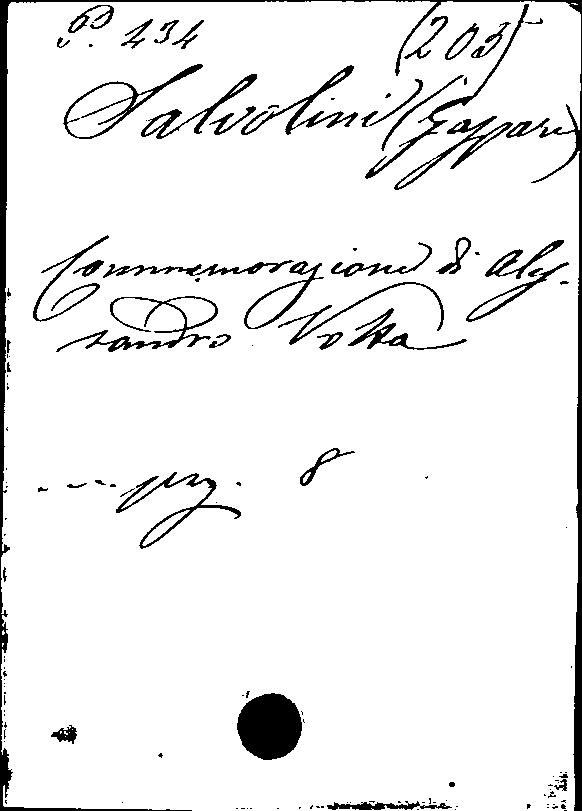 P. 434 (203)
Salvolini (Gaspare)
Commemorazione di Ales-
sandro Volta
pag. 8